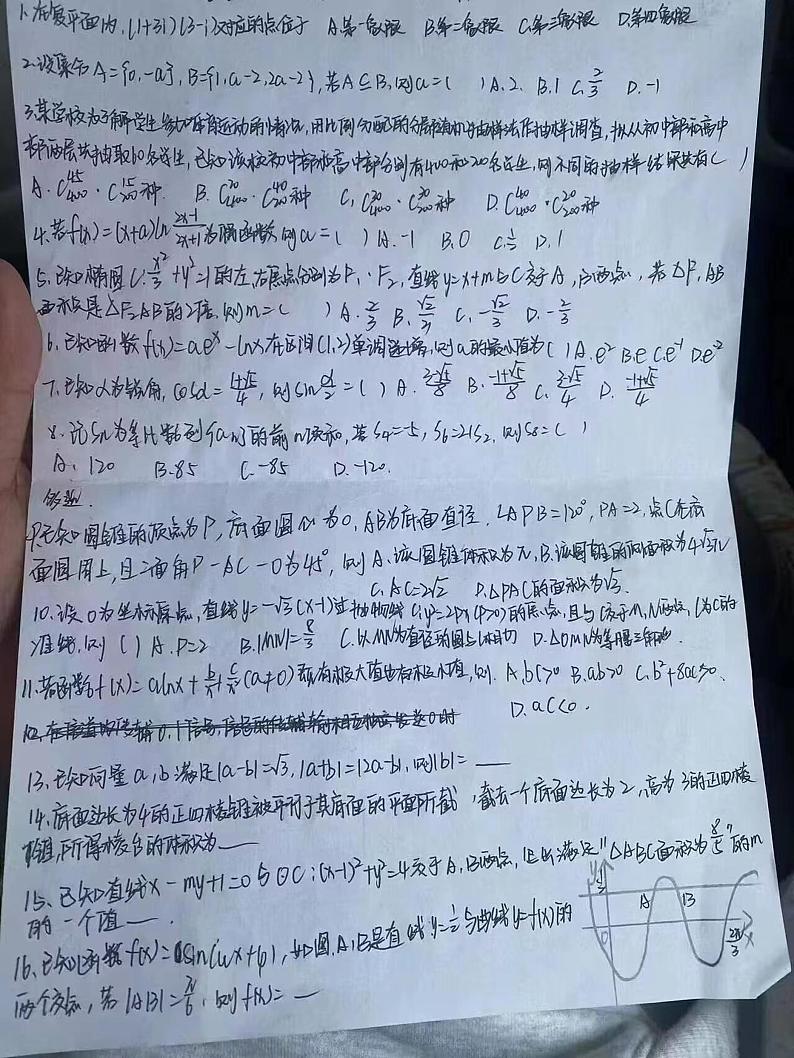 1.在复平面内,(1+3i)(3-i)对应的点位于 A.第一象限 B.第二象限 C.第三象限 D.第四象限
2.设集合A={0,-a},B={1,a-2,2a-2},若A⊆B,则a=( )A.2. B.1 C.2/3 D.-1
3.某学校为了解学生参加体育运动的情况,用比例分配的分层随机抽样法作抽样调查,拟从初中部和高中
部两层共抽取60名学生,已知该校初中部和高中部分别有400和200名学生,则不同的抽样结果共有( )
A.C₄₀₀⁴⁵·C₂₀₀¹⁵种 B.C₄₀₀²⁰·C₂₀₀⁴⁰种 C.C₄₀₀³⁰·C₂₀₀³⁰种 D.C₄₀₀⁴⁰·C₂₀₀²⁰种
4.若f(x)=(x+a)ln(2x-1)/(2x+1)为偶函数,则a=( )A.-1 B.0 C.1/2 D.1
5.已知椭圆C:x²/3+y²=1的左、右焦点分别为F₁、F₂,直线y=x+m与C交于A,B两点,若△F₁AB
面积是△F₂AB的2倍,则m=( )A.2/3 B.√2/3 C.-√2/3 D.-2/3
6.已知函数f(x)=aeˣ-lnx在区间(1,2)单调递增,则a的最小值为( )A.e² B.e C.e⁻¹ D.e⁻²
7.已知α为锐角,cosα=(1+√5)/4,则sinα/2=( )A.(3-√5)/8 B.(-1+√5)/8 C.(3-√5)/4 D.(-1+√5)/4
8.记Sn为等比数列{an}的前n项和,若S₄=-5,S₆=21S₂,则S₈=( )
A.120 B.85 C.-85 D.-120.
多选.
9.已知圆锥的顶点为P,底面圆心为O,AB为底面直径.∠APB=120°,PA=2,点C在底
面圆周上,且二面角P-AC-O为45°,则A.该圆锥体积为π,B.该圆锥的侧面积为4√3π
C.AC=2√2 D.△PAC的面积为√3.
10.设O为坐标原点,直线y=-√3(x-1)过抛物线C:y²=2px(p>0)的焦点,且与C交于M,N两点,l为C的
准线,则( )A.p=2 B.|MN|=8/3 C.以MN为直径的圆与l相切 D.△OMN为等腰三角形.
11.若函数f(x)=alnx+b/x+c/x²(a≠0)既有极大值也有极小值,则. A.bc>0 B.ab>0 C.b²+8ac>0.
D.ac<0.
13.已知向量a,b满足|a-b|=√3,|a+b|=|2a-b|,则|b|=___
14.底面边长为4的正四棱锥被平行于其底面的平面所截,截去一个底面边长为2,高为3的正四棱
锥,所得棱台的体积为___
15.已知直线x-my+1=0与⊙C:(x-1)²+y²=4交于A,B两点,写出满足"△ABC面积为8/5"的m
的一个值___.
16.已知函数f(x)=sin(ωx+φ),如图,A,B是直线y=1/2与曲线y=f(x)的
两个交点,若|AB|=π/6,则f(π)=___
y
1/2
A
B
O
2π/3
x